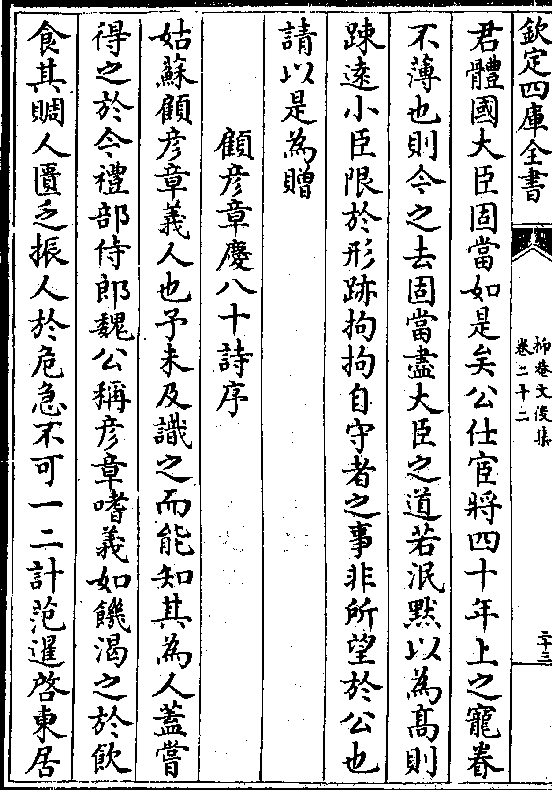 欽定四庫全書
抑菴文後集
卷二十二
二十三
君體國大臣固當如是矣公仕宦將四十年上之寵眷
不薄也則今之去固當盡大臣之道若泯黙以為髙則
踈逺小臣限於形跡拘拘自守者之事非所望於公也
請以是為贈
顧彦章慶八十詩序
姑蘇顧彦章義人也予未及識之而能知其為人蓋嘗
得之於今禮部侍郎魏公稱彦章嗜義如饑渇之於飲
食其賙人匱乏振人於危急不可一二計范暹啓東居